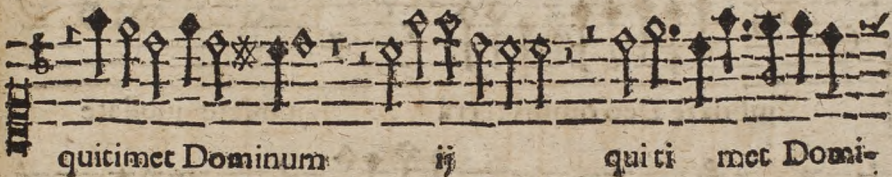 qui timet Dominum ij qui ti met Domi-